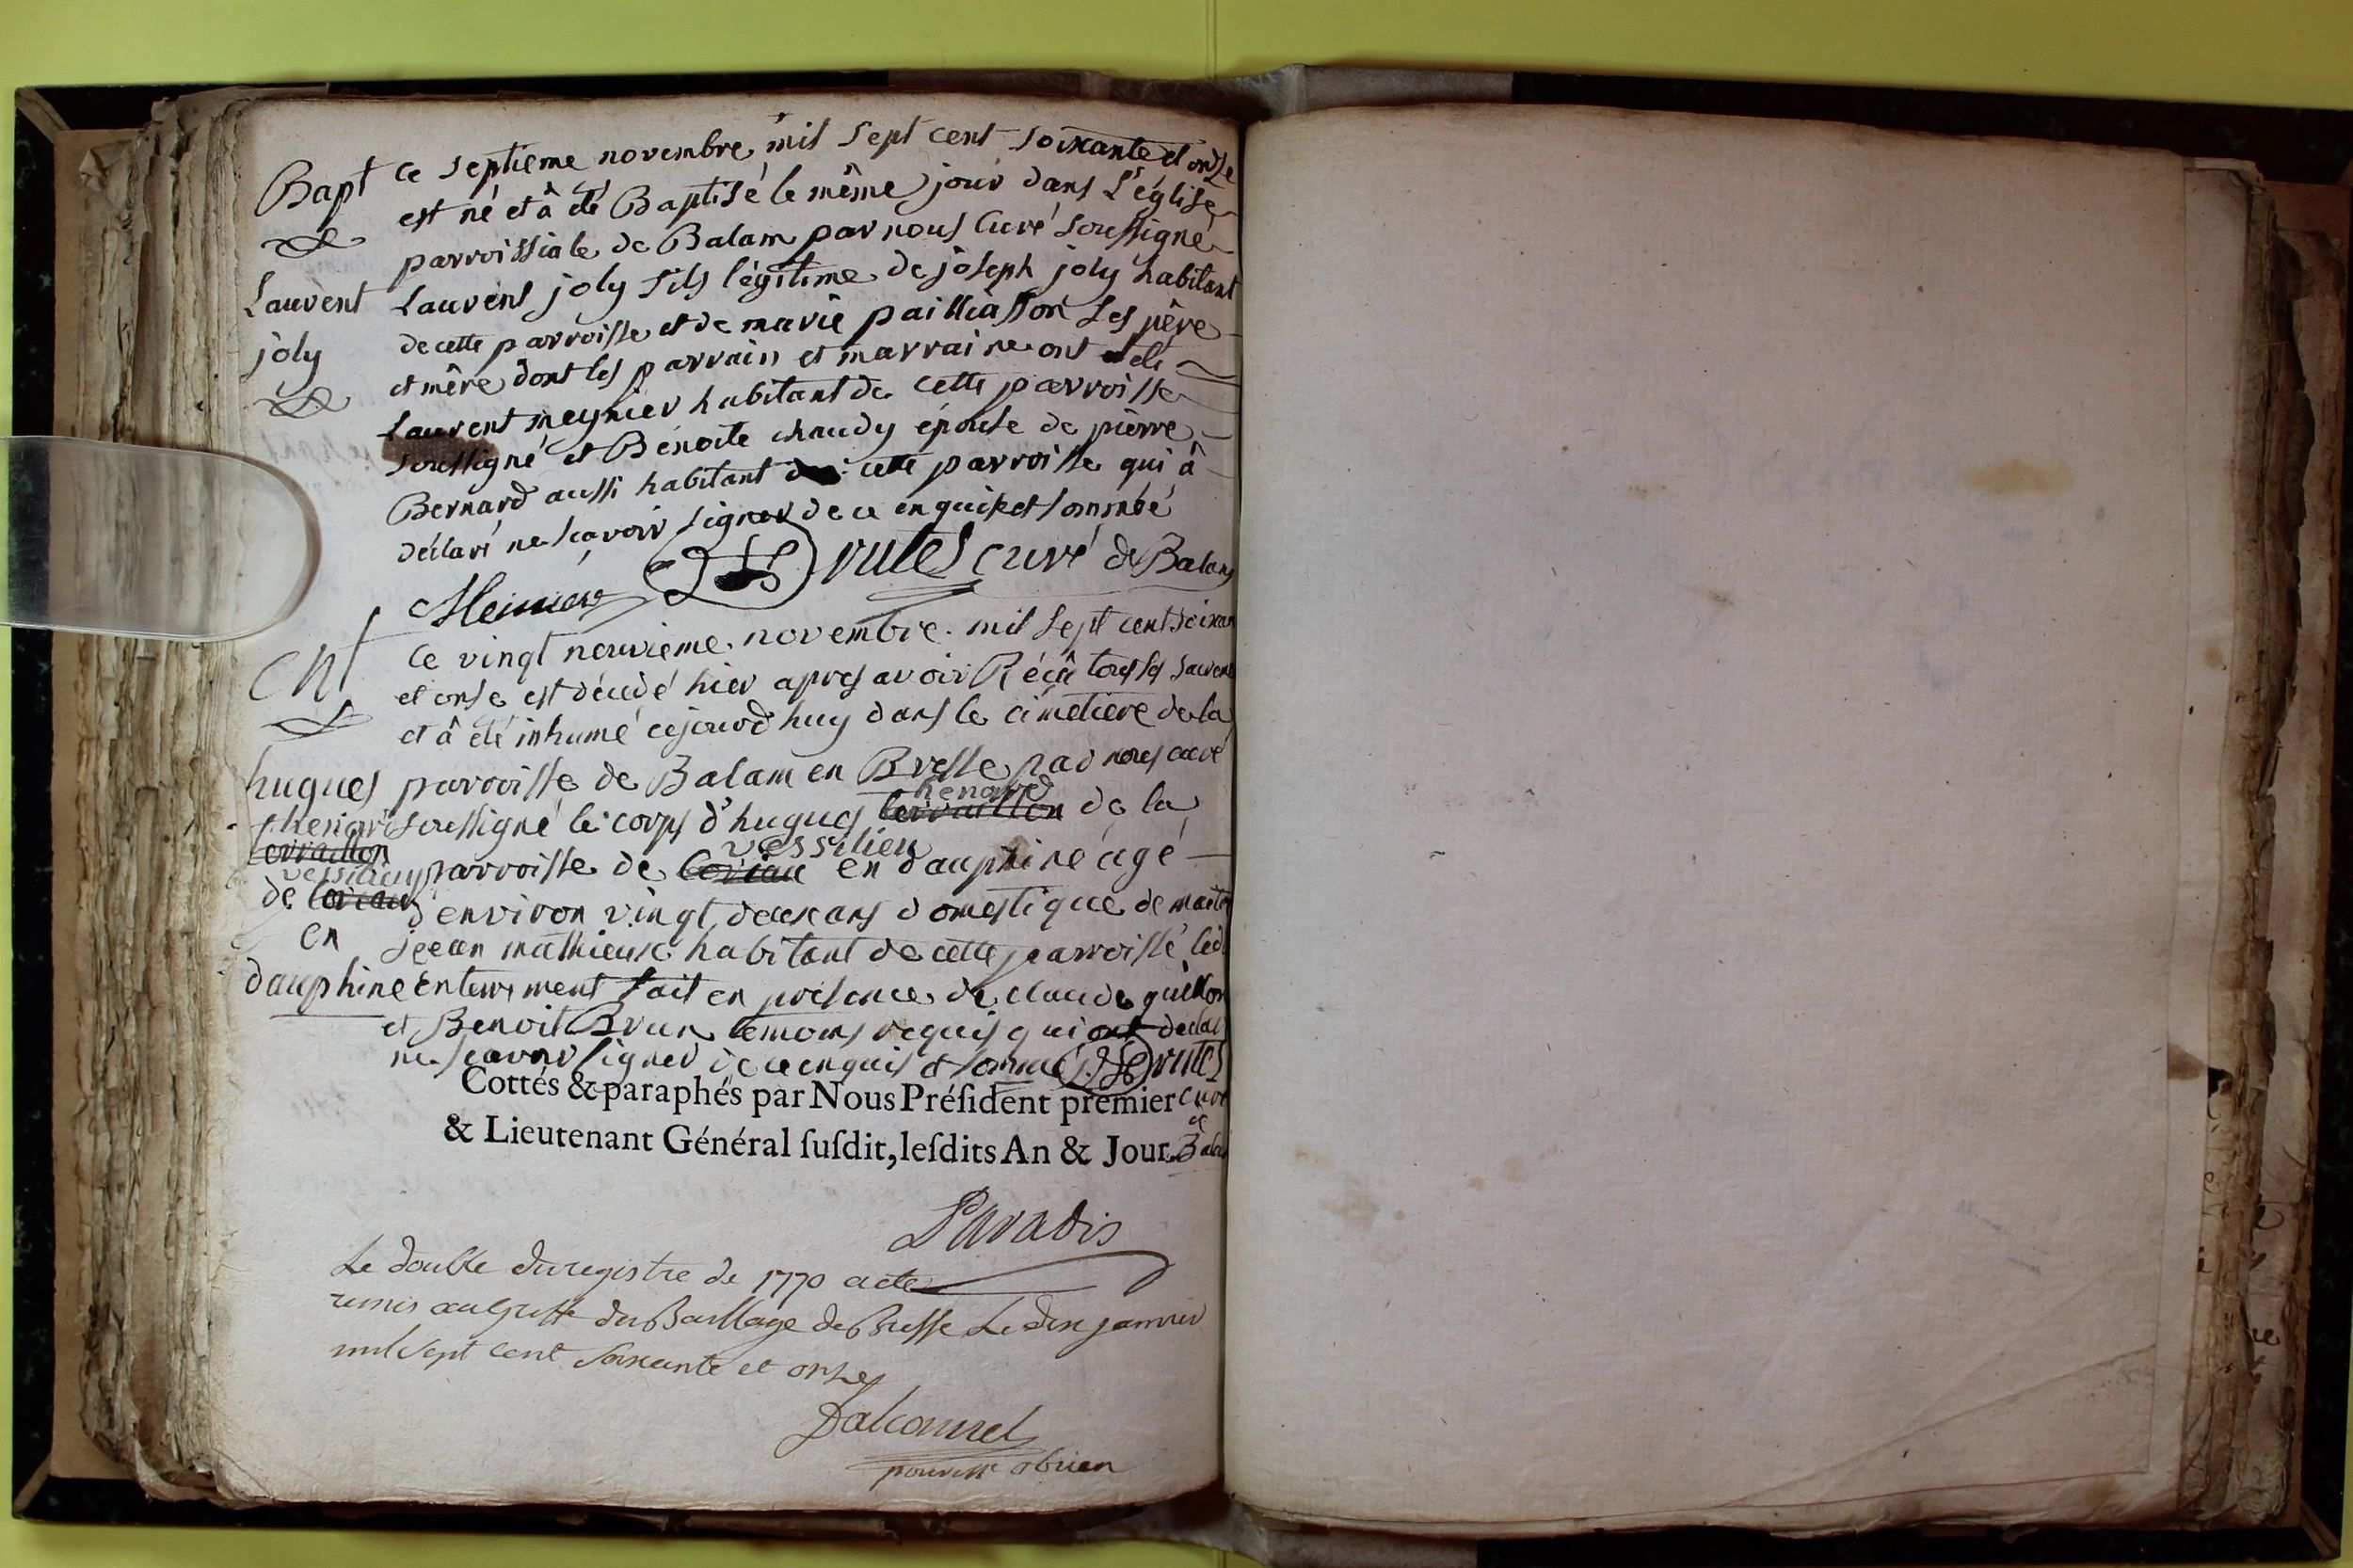 Bapt
Laurent
joly
Ce septieme novembre mil sept cent soixante et onze
est né et â été Baptisé le même jour dans L'église
parroissiale de Balam par nous Curé soussigné
Laurent joly fils légitime de joseph joly habitant
de cette parroisse et de marie pailliasson Ses père
et mère dont les parrain et marraine ont été
Laurent meynier habitant de cette parroisse
soussigné et Benoite chaudy épouse de pierre
Bernard aussi habitant de cette parroisse qui â
déclaré ne scavoir signer de ce enquise et sommée
vutes curé de Balam
Meinier
Ent
hugues
henard
lervaillon
vessilieu
de loriau
en
dauphiné
Ce vingt neuvieme novembre mil sept cent soixan
et onse est décedé hier apres avoir Reçû tous ses sacrem
et â été inhumé cejourd huy dans le cimetiere de la
parroisse de Balam en Bresse par nous curé
henard
soussigné le corps d'hugues lervaillon de la
vessilieu
parroisse de loriau en dauphiné agé
d'environ vingt deux ans domestique de maitre
jean mathieux habitant de cette parroisse led
enterrement fait en presence de claude guillon
et Benoit Brun temoins requis qui ont declar
ne scavoir signer de ce enquis et sommé vutes
curé
de
Balam
Cottés & paraphés par Nous Préſident premier
& Lieutenant Général ſuſdit, leſdits An & Jour.
Paradis
Le double du registre de 1770 a été
remis au Greffe du Baillage de Bresse Le dix janvier
mil sept cent soixante et onze